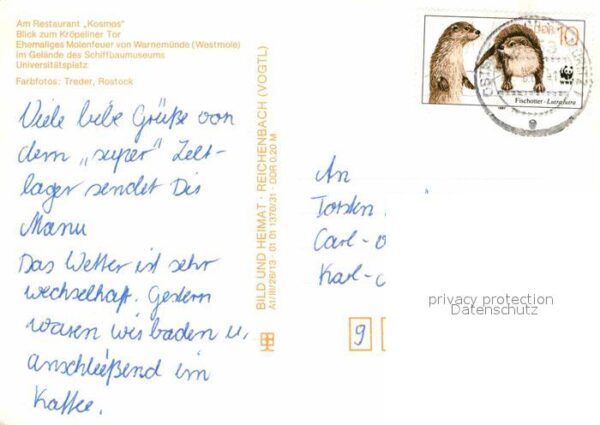 Am Restaurant „Kosmos"
Blick zum Kröpeliner Tor
Ehemaliges Molenfeuer von Warnemünde (Westmole)
im Gelände des Schiffbaumuseums
Universitätsplatz
Farbfotos: Treder, Rostock
Viele liebe Grüße von
dem „super" Zelt-
lager sendet Dir
Manu
Das Wetter ist sehr
wechselhaft. Gestern
waren wir baden u.
anschließend im
Kaffee.
BILD UND HEIMAT · REICHENBACH (VOGTL)
A1/III/26/13 · 01 01 1370/31 · DDR 0,20 M
DDR 10
Fischotter · Lutra lutra
An
Torsten
Carl-
Karl-
9
privacy protection
Datenschutz